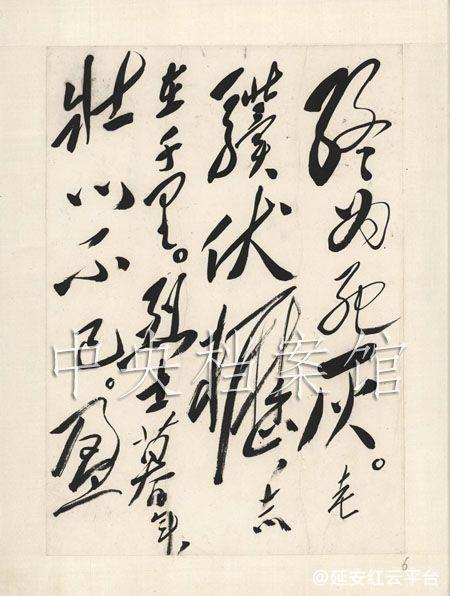 终为死灰。老
驥伏櫪，志
在千里。烈士暮年、
壮心不已。盈
中央档案馆
6
@延安红云平台